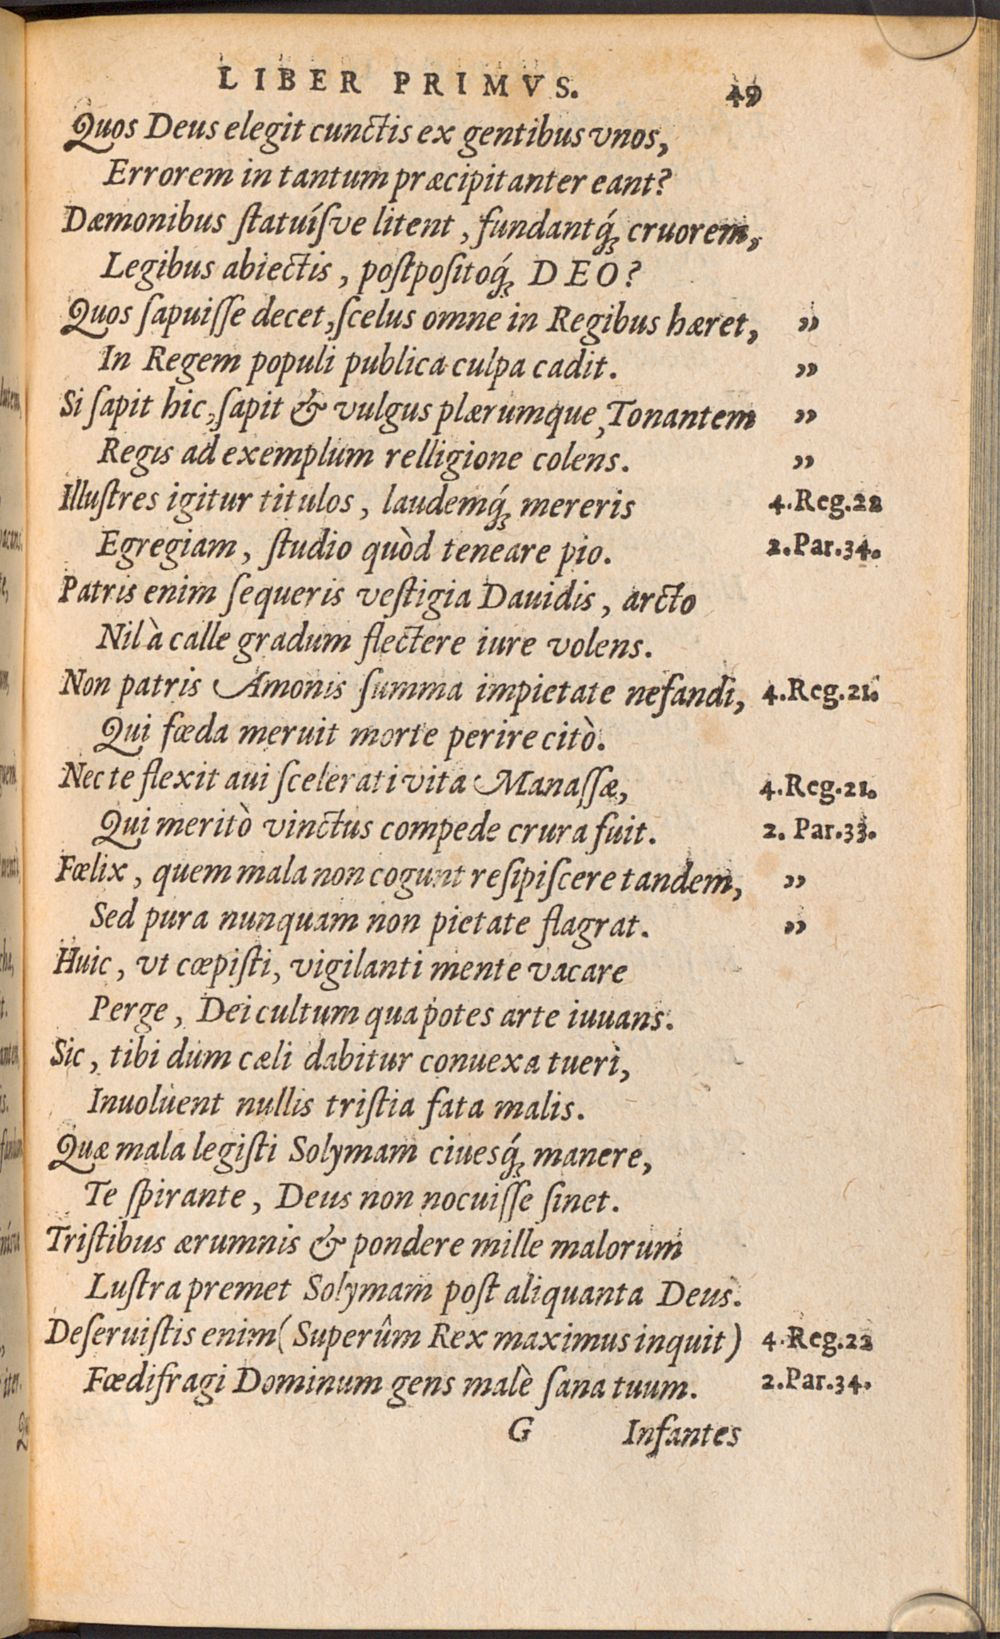 LIBER PRIMVS. 49
Quos Deus elegit cunctis ex gentibus vnos,
Errorem in tantum præcipitanter eant?
Dæmonibus ſtatuíſve litent, fundantq́; cruorem,
Legibus abiectis, poſtpoſitoq́; DEO?
Quos ſapuiſſe decet, ſcelus omne in Regibus hæret, „
In Regem populi publica culpa cadit. „
Si ſapit hic, ſapit & vulgus plærumque, Tonantem „
Regis ad exemplum relligione colens. „
Illuſtres igitur titulos, laudemq́; mereris 4.Reg.22
Egregiam, ſtudio quòd teneare pio. 2.Par.34.
Patris enim ſequeris veſtigia Dauidis, arcto
Nil à calle gradum flectere iure volens.
Non patris Amonis ſumma impietate nefandi, 4.Reg.21.
Qui fœda meruit morte perire citò.
Nec te flexit aui ſcelerati vita Manaſſæ, 4.Reg.21.
Qui meritò vinctus compede crura fuit. 2. Par.33.
Fœlix, quem mala non cogunt reſipiſcere tandem, „
Sed pura nunquam non pietate flagrat. „
Huic, vt cœpiſti, vigilanti mente vacare
Perge, Dei cultum qua potes arte iuuans.
Sic, tibi dum cæli dabitur conuexa tueri,
Inuoluent nullis triſtia fata malis.
Quæ mala legiſti Solymam ciuesq́; manere,
Te ſpirante, Deus non nocuiſſe ſinet.
Triſtibus ærumnis & pondere mille malorum
Luſtra premet Solymam poſt aliquanta Deus.
Deſeruiſtis enim (Superûm Rex maximus inquit) 4.Reg.22
Fœdifragi Dominum gens malè ſana tuum. 2.Par.34.
G Infantes